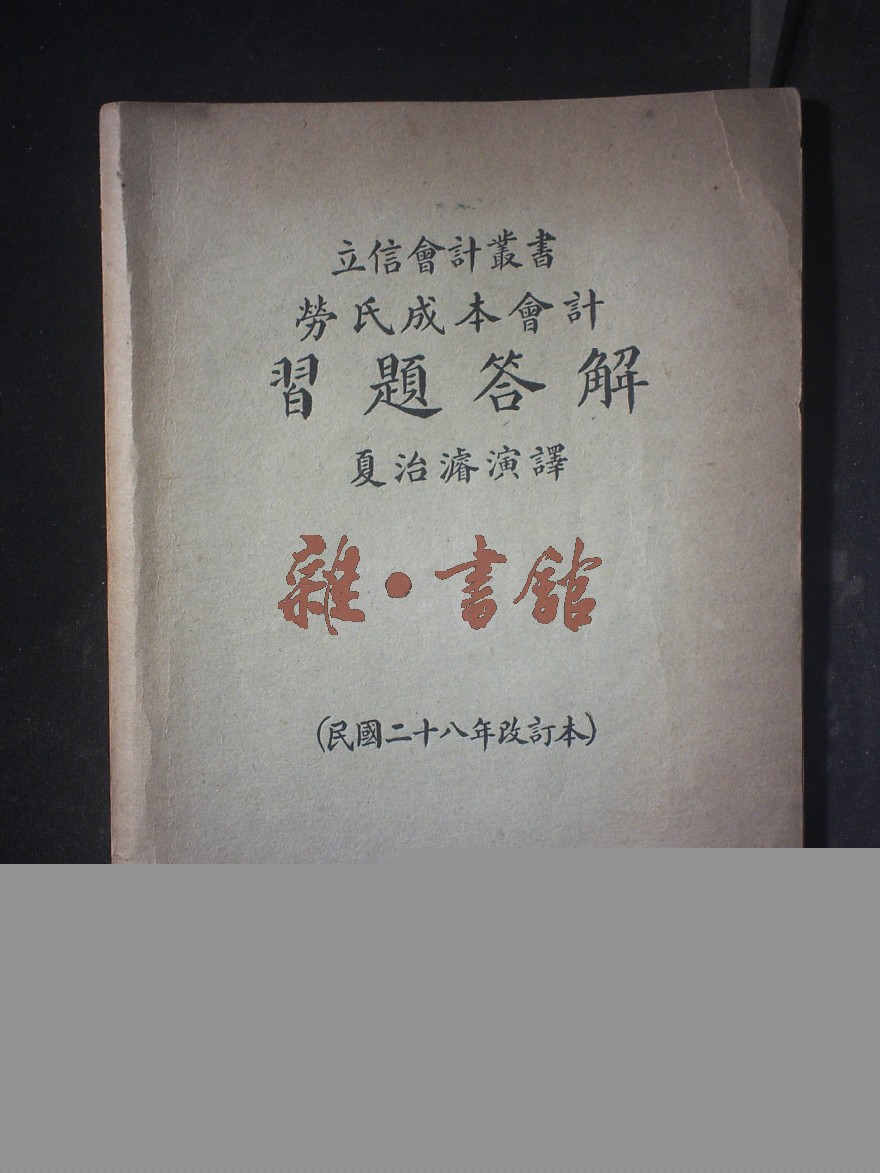 立信會計叢書
勞氏成本會計
習題答解
夏治濬演譯
雜·書館
(民國二十八年改訂本)